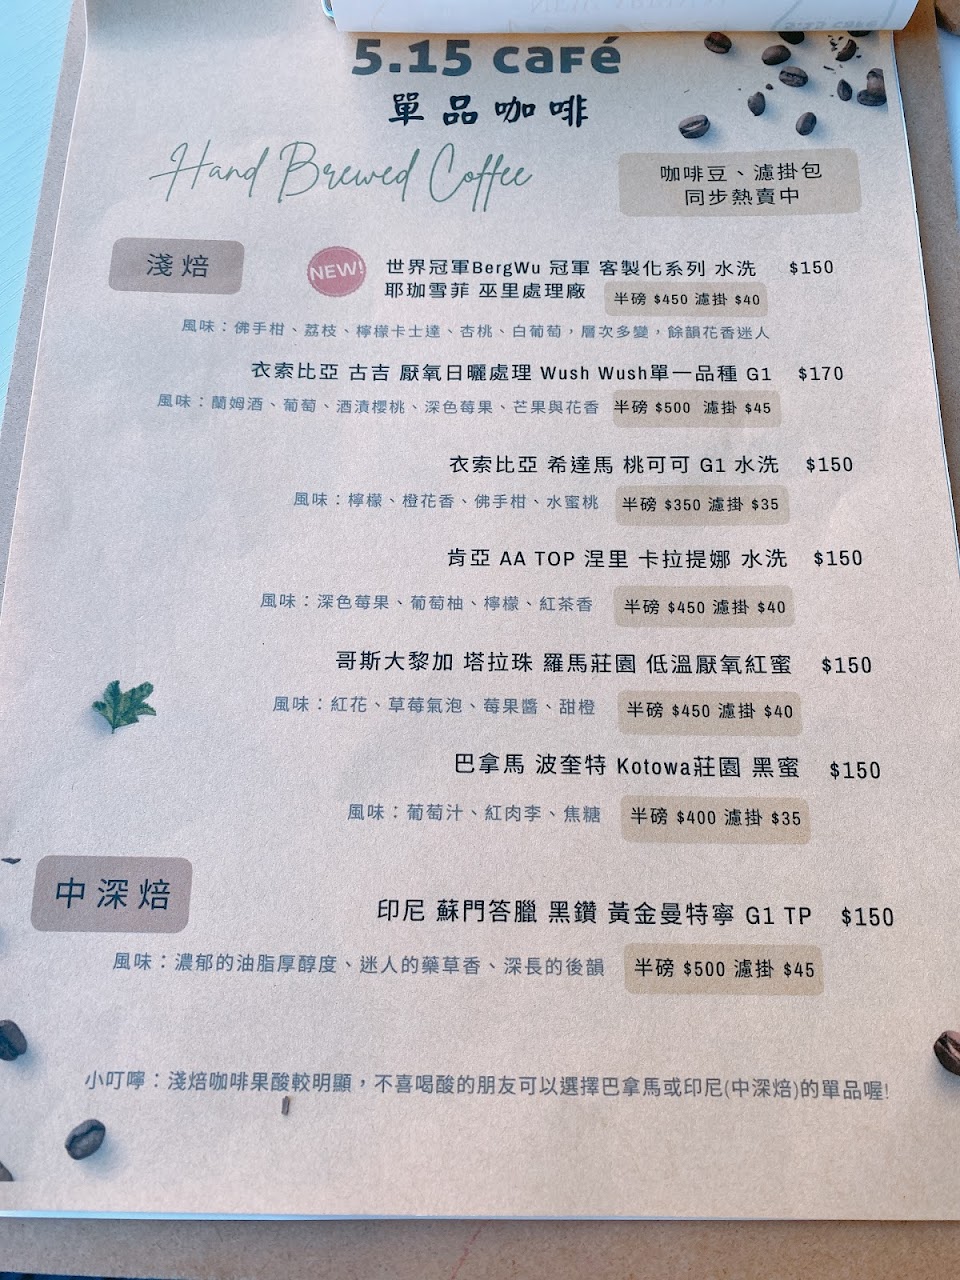 5.15 café
單品咖啡
Hand Brewed Coffee
咖啡豆、濾掛包
同步熱賣中
淺焙
NEW!
世界冠軍BergWu 冠軍 客製化系列 水洗 $150
耶珈雪菲 巫里處理廠 半磅 $450 濾掛 $40
風味：佛手柑、荔枝、檸檬卡士達、杏桃、白葡萄，層次多變，餘韻花香迷人
衣索比亞 古吉 厭氧日曬處理 Wush Wush單一品種 G1 $170
風味：蘭姆酒、葡萄、酒漬櫻桃、深色莓果、芒果與花香 半磅 $500 濾掛 $45
衣索比亞 希達馬 桃可可 G1 水洗 $150
風味：檸檬、橙花香、佛手柑、水蜜桃 半磅 $350 濾掛 $35
肯亞 AA TOP 涅里 卡拉提娜 水洗 $150
風味：深色莓果、葡萄柚、檸檬、紅茶香 半磅 $450 濾掛 $40
哥斯大黎加 塔拉珠 羅馬莊園 低溫厭氧紅蜜 $150
風味：紅花、草莓氣泡、莓果醬、甜橙 半磅 $450 濾掛 $40
巴拿馬 波奎特 Kotowa莊園 黑蜜 $150
風味：葡萄汁、紅肉李、焦糖 半磅 $400 濾掛 $35
中深焙
印尼 蘇門答臘 黑鑽 黃金曼特寧 G1 TP $150
風味：濃郁的油脂厚醇度、迷人的藥草香、深長的後韻 半磅 $500 濾掛 $45
小叮嚀：淺焙咖啡果酸較明顯，不喜喝酸的朋友可以選擇巴拿馬或印尼(中深焙)的單品喔!